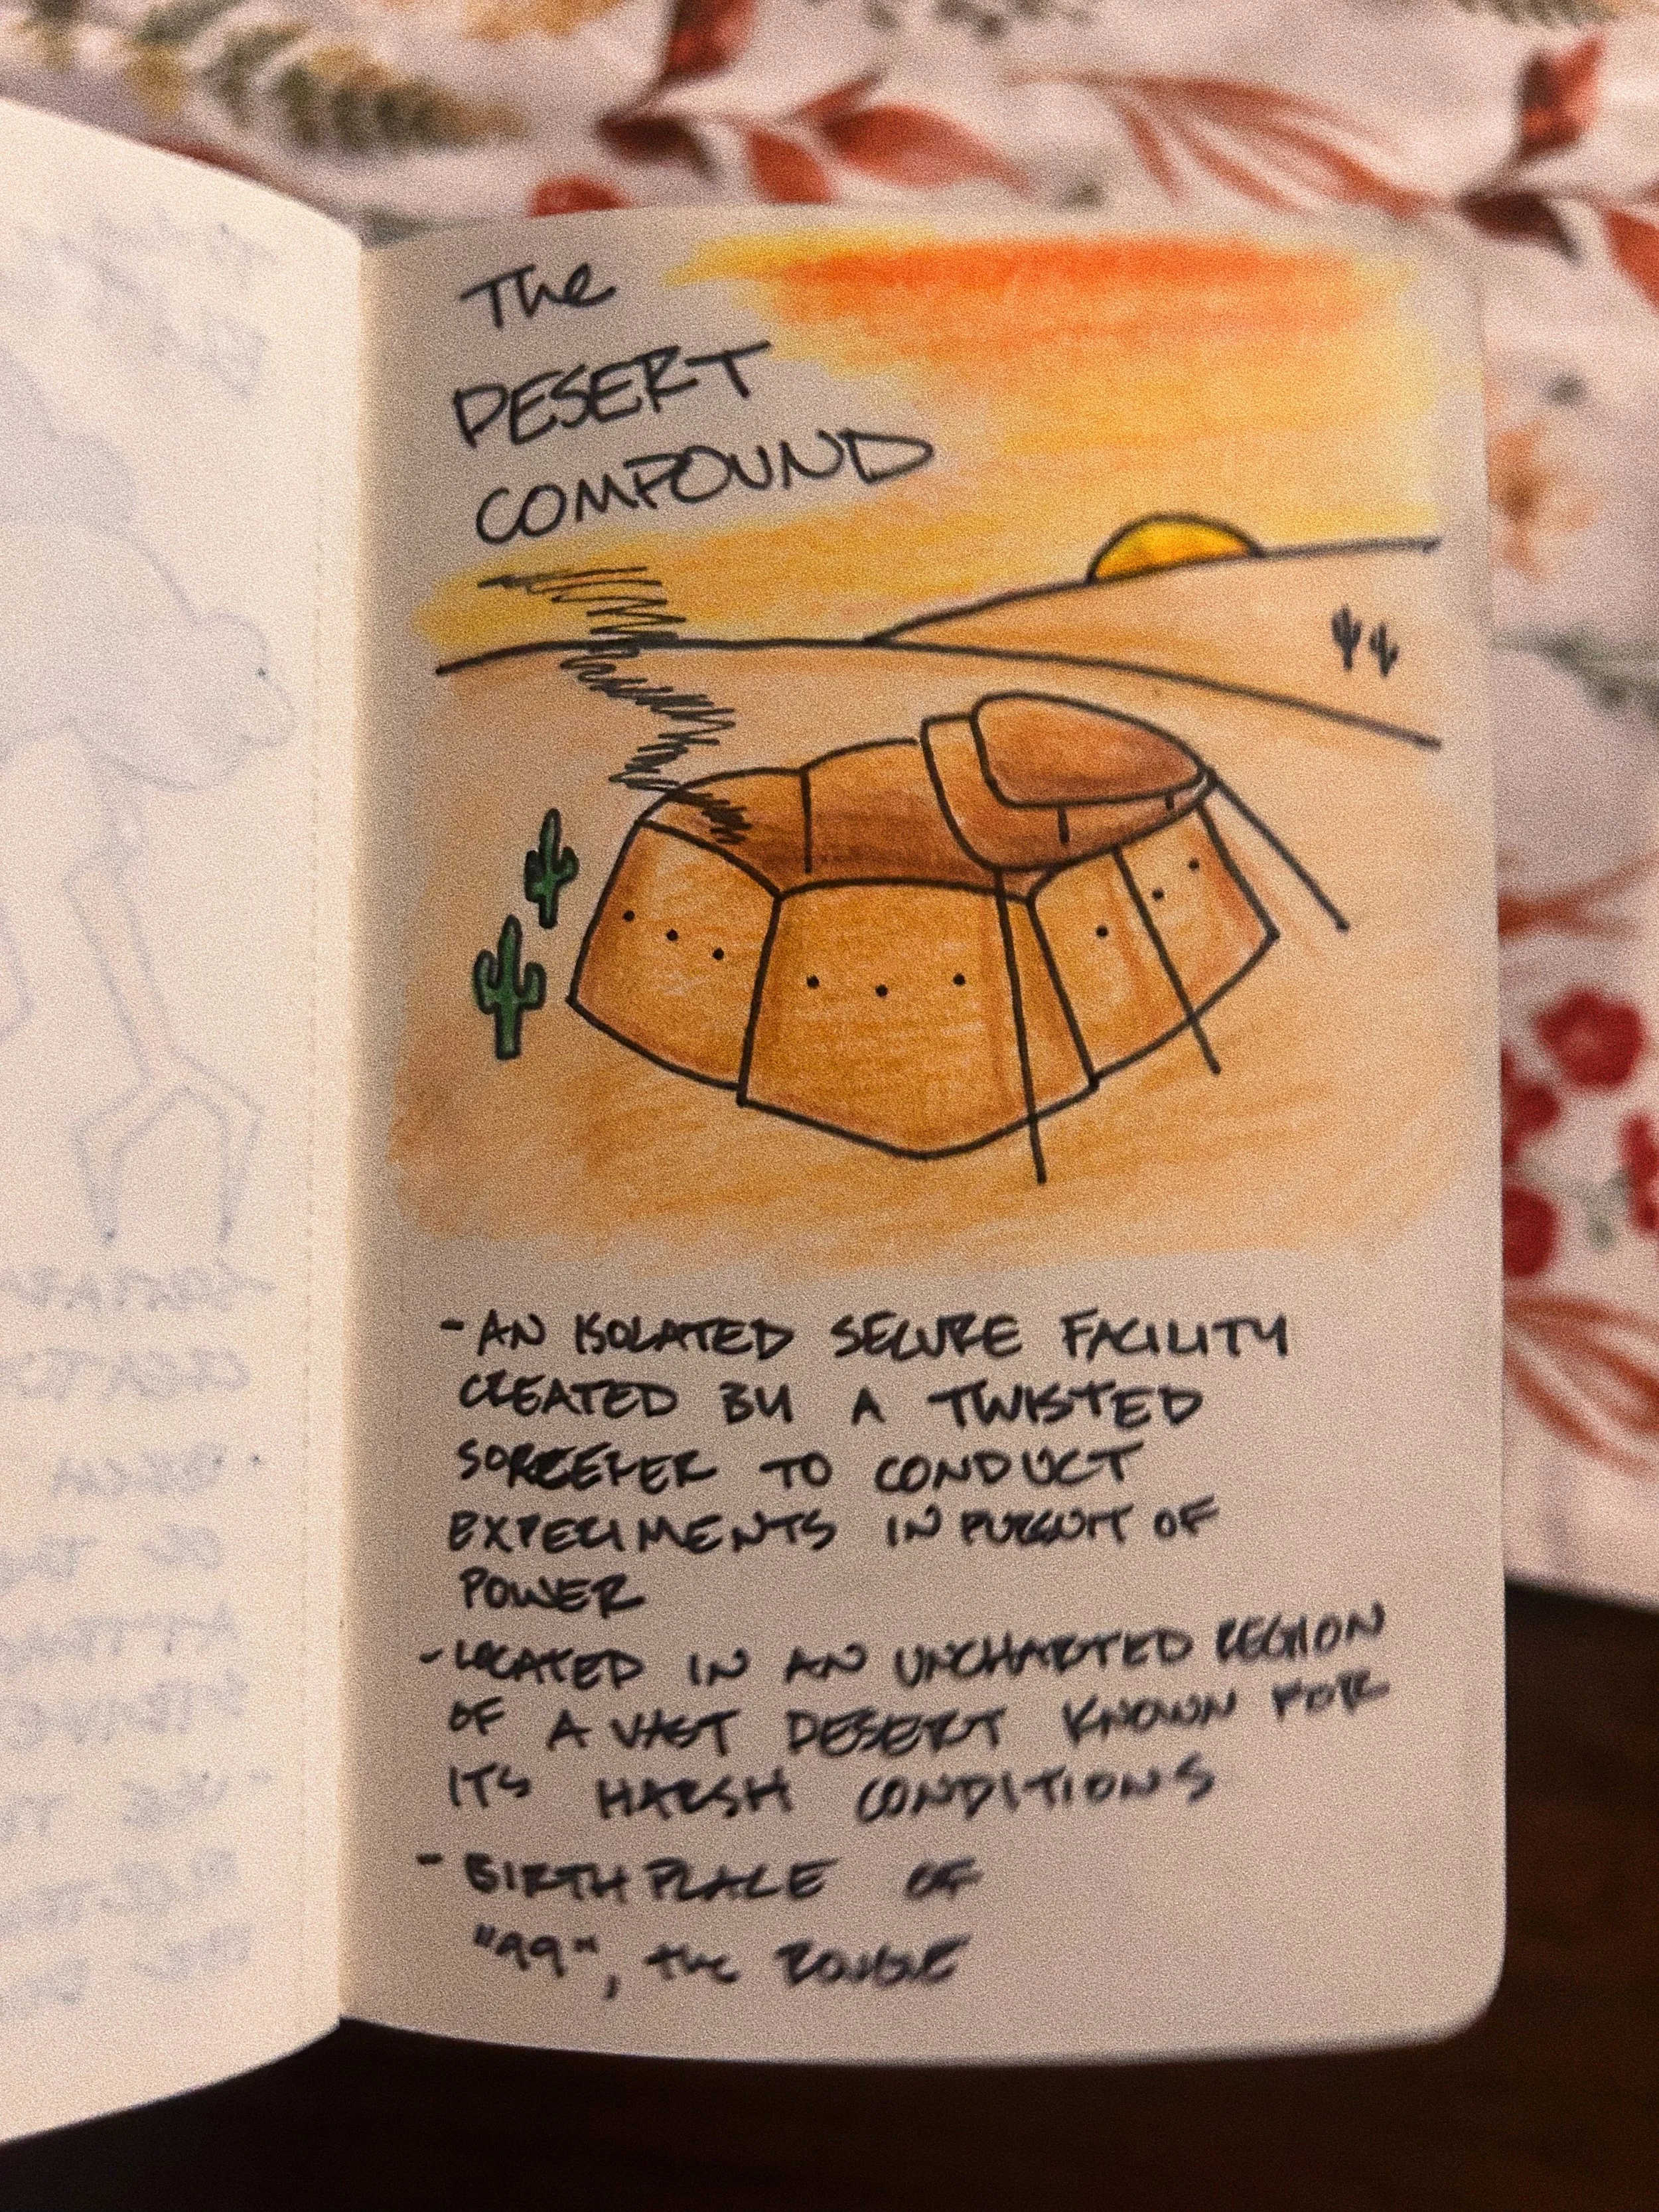 The
DESERT
COMPOUND
- AN ISOLATED SECURE FACILITY
CREATED BY A TWISTED
SORCERER TO CONDUCT
EXPERIMENTS IN PURSUIT OF
POWER
- LOCATED IN AN UNCHARTED REGION
OF A VAST DESERT KNOWN FOR
IT'S HARSH CONDITIONS
- BIRTH PLACE OF
"99", the ROUGE